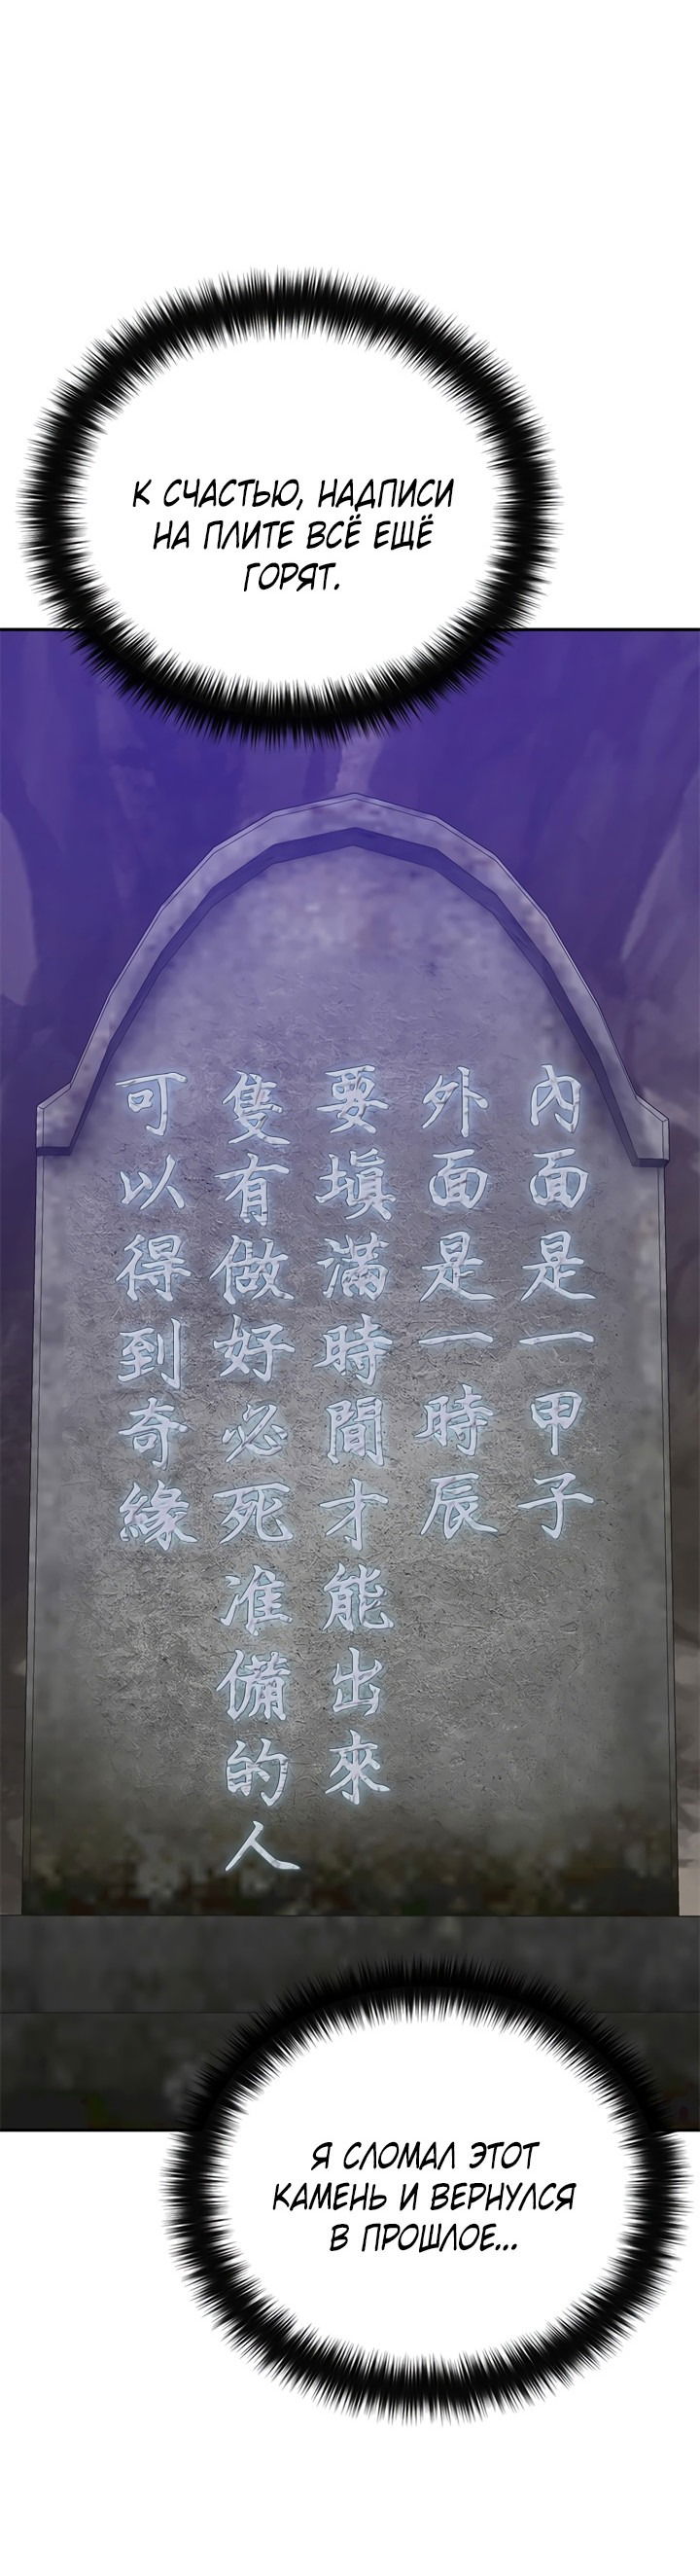 К СЧАСТЬЮ, НАДПИСИ
НА ПЛИТЕ ВСЁ ЕЩЁ
ГОРЯТ.
內面是一甲子
外面是一時辰
要填滿時間才能出來
隻有做好必死准備的人
可以得到奇緣
Я СЛОМАЛ ЭТОТ
КАМЕНЬ И ВЕРНУЛСЯ
В ПРОШЛОЕ...